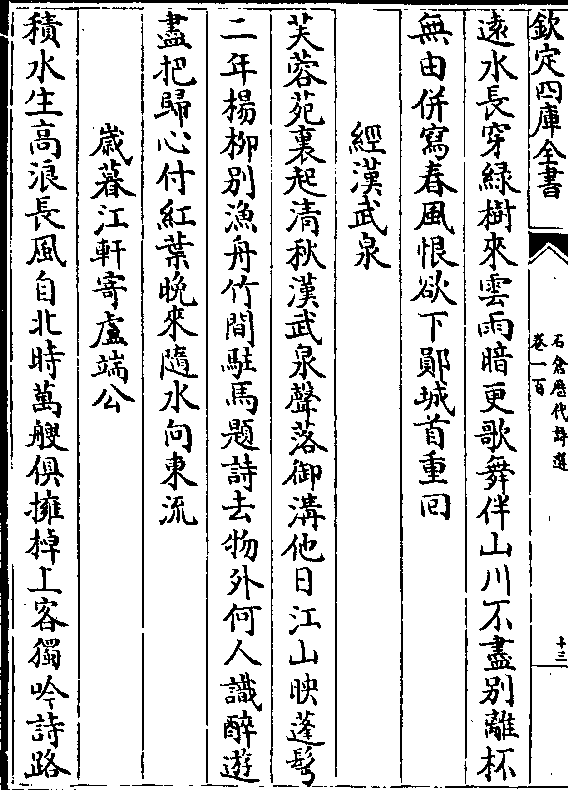 欽定四庫全書
石倉歴代詩選
卷一百
十三
遠水長穿緑樹來雲雨暗更歌舞伴山川不盡别離杯
無由併寫春風恨欲下鄖城首重回
經漢武泉
芙蓉苑裏起清秋漢武泉聲落御溝他日江山映蓬髩
二年楊柳别漁舟竹間駐馬題詩去物外何人識醉遊
盡把歸心付紅葉晩來隨水向東流
歲暮江軒寄盧端公
積水生高浪長風自北時萬艘俱擁棹上客獨吟詩路